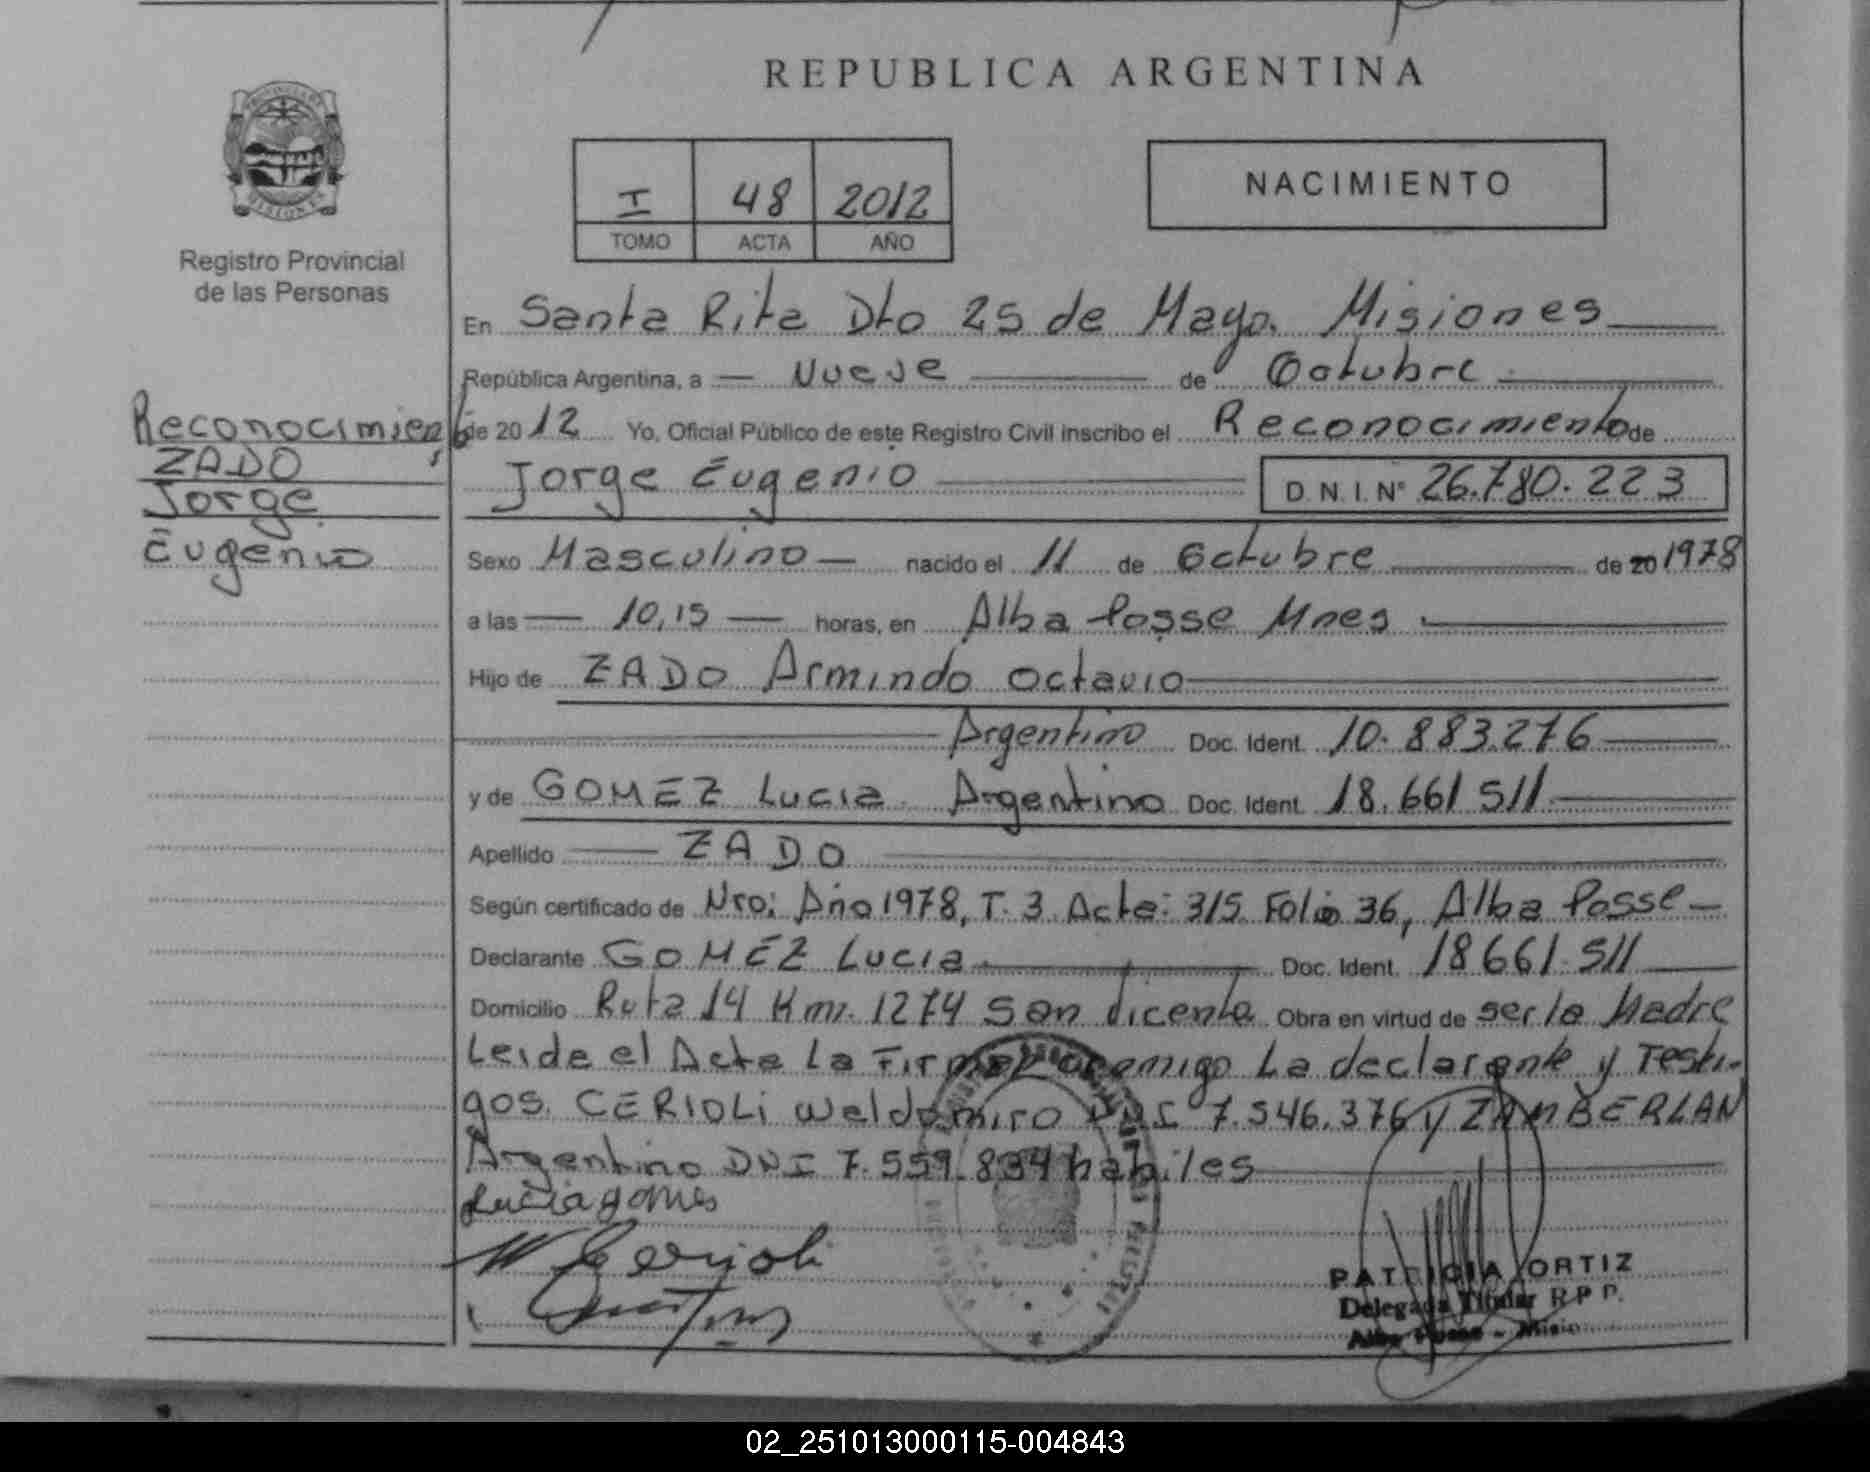 REPUBLICA ARGENTINA
PROVINCIA DE
MISIONES
Registro Provincial
de las Personas
I 48 2012
TOMO ACTA AÑO
NACIMIENTO
En Santa Rita Dto 25 de Mayo. Misiones
República Argentina, a Nueve de Octubre
de 2012 Yo, Oficial Público de este Registro Civil inscribo el Reconocimiento de
Jorge Eugenio D.N.I. N° 26.780.223
Reconocimiento
ZADO
Jorge
Eugenio
Sexo Masculino nacido el 11 de Octubre de 20 1978
a las 10,15 horas, en Alba Posse Mnes
Hijo de ZADO Armindo Octavio
Argentino Doc. Ident. 10.883.276
y de GOMEZ Lucia Argentino Doc. Ident. 18.661 511
Apellido ZADO
Según certificado de Nro; Año 1978, T. 3 Acta: 315 Folio 36, Alba Posse
Declarante GOMEZ Lucia Doc. Ident. 18661.511
Domicilio Ruta 14 Km. 1274 San Vicente Obra en virtud de ser la Madre
Leida el Acta La Firman conmigo La declarante y Testi-
gos. CERIOLI Waldomiro DNI 7.546.376 y ZAMBERLAN
Argentino DNI 7.559.834 habiles
Lucia gomes
W Cerioli
PATRICIA ORTIZ
Delegada Titular R.P.P.
Alba Posse - Misio
02_251013000115-004843